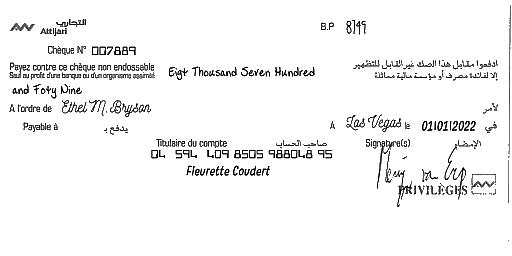 التجاري
Attijari
B.P 8749
Chèque N° 007889
Payez contre ce chèque non endossable
Seuf au profit d'une banque ou d'un organisme assimilé
Eigt Thousand Seven Hundred
ادفعوا مقابل هذا الصك غير القابل للتظهير
إلا لفائدة مصرف أو مؤسسة مالية مماثلة
and Foty Nine
A l'ordre de Ethel M. Bryson لأمر
Payable à يدفع بـ A Las Vegas le 01/01/2022 في
Titulaire du compte صاحب الحساب Signature(s) الإمضاء
04 594 409 8505 988048 95
Fleurette Coudert
PRIVILÈGES